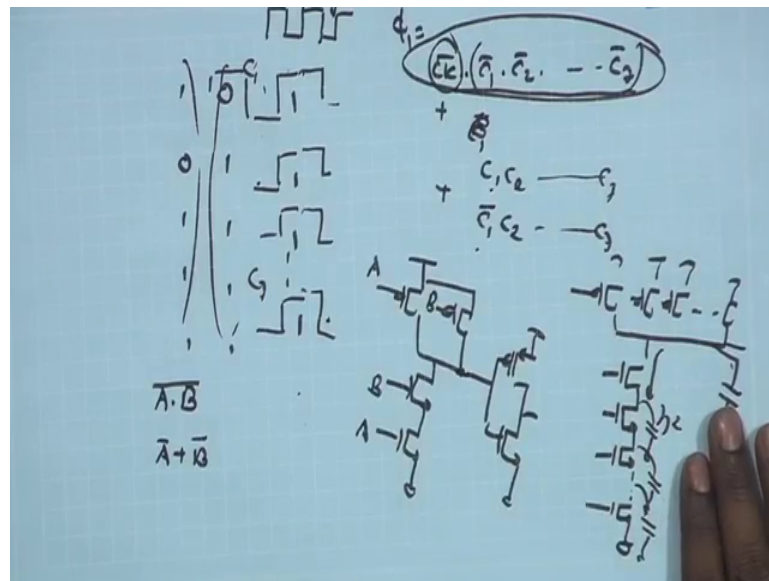 ϕ₁ =
C̅K̅ · (C̅₁ · C̅₂ · - - · C̅₇)
+
C₁C₂ —— C₇
+ C̅₁C₂ - —— C₇
1 1 0 C₁ 1
0 1 1
1 1 1
1 1 C₇ 1
A
B
B
A
A̅·̅B̅
A̅ + B̅